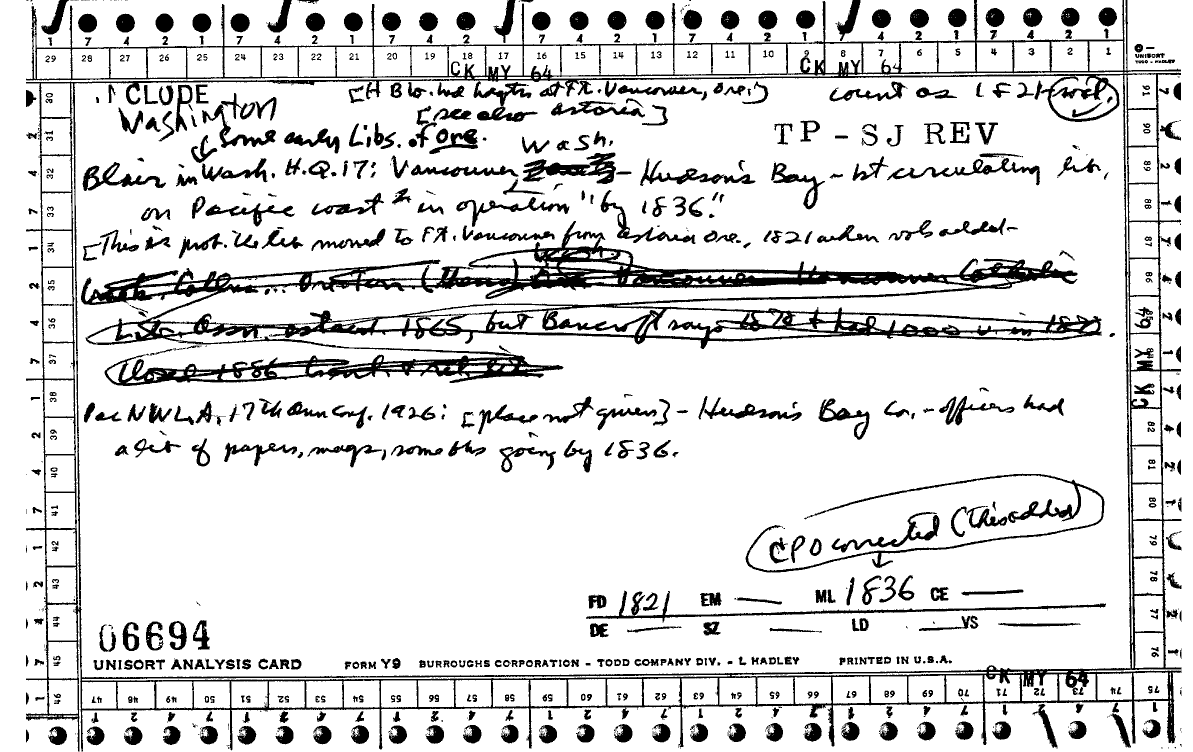 7 4 2 1 7 4 2 1 7 4 2 1 7 4 2 1 7 4 2 1 7 4 2 1
29 28 27 26 25 24 23 22 21 20 19 18 17 16 15 14 13 12 11 10 9 8 7 6 5 4 3 2 1
UNISORT
TODD - HADLEY
CK MY 64 CK MY 64
CLUDE [H at Ft. Vancouver, Ore.] count as 1821
Washington [see also Astoria]
Some early Libs. of Ore. TP - SJ REV
Wash.
Blair in Wash. H.Q. 17: Vancouver, - Hudson's Bay - 1st circulating lib.
on Pacific coast in operation "by 1836."
[This is prob. the lib moved to Ft. Vancouver from Astoria Ore., 1821 when vols added-
Wash.
Vancouver Vancouver Catholic
Lib. Assn. establ. 1865, but Bancroft says 1872 & had 1000 v. in 1872.
Closed 1886
Pac NWLA, 17th Ann Conf. 1926: [place not given] - Hudson's Bay Co. - officers had
a lib of papers, mags, some bks going by 1836.
CPO corrected (this added)
FD 1821 EM — ML 1836 CE —
DE — SZ LD — VS —
06694
UNISORT ANALYSIS CARD FORM Y9 BURROUGHS CORPORATION - TODD COMPANY DIV. - L HADLEY PRINTED IN U.S.A.
CK MY 64
CK MY 64
30 31 32 33 34 35 36 37 38 39 40 41 42 43 44 45 46
47 48 49 50 51 52 53 54 55 56 57 58 59 60 61 62 63 64 65 66 67 68 69 70 71 72 73 74 75